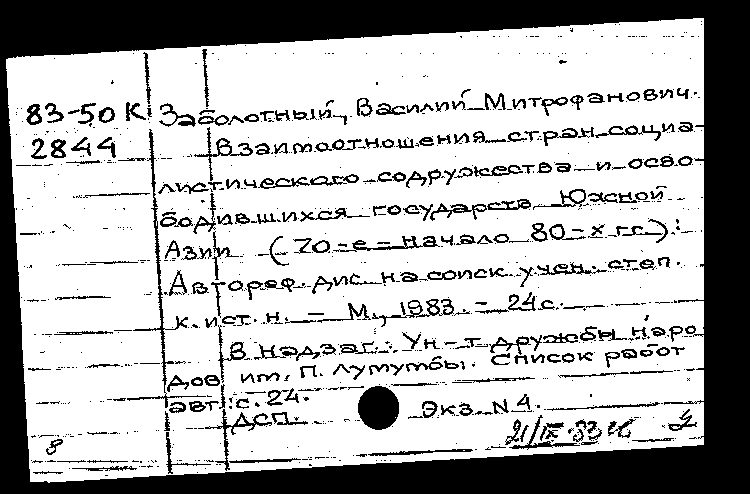 83-50К Заболотный, Василий Митрофанович.
2844 Взаимоотношения стран социа-
листического содружества и осво-
бодившихся государств Южной
Азии (70-е - начало 80-х гг.):
Автореф. дис. на соиск. учен. степ.
к. ист. н. - М., 1983. - 24с.
В надзаг.: Ун-т дружбы наро
дов им. П. Лумумбы. Список работ
авт.: с. 24.
ДСП. Экз. N 4.
21/IX-83
8